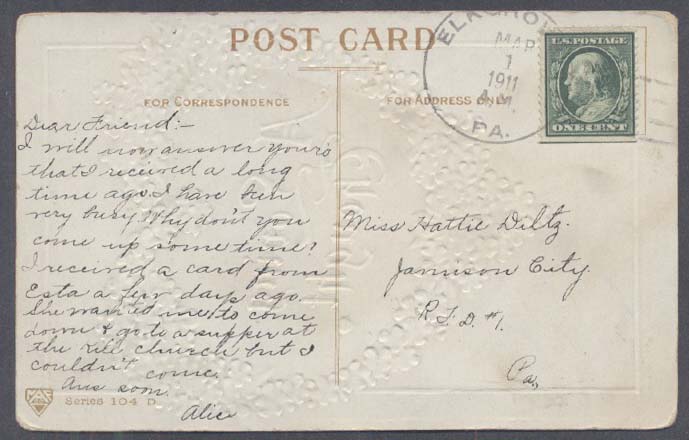 POST CARD
FOR CORRESPONDENCE
FOR ADDRESS ONLY
ELK GROVE
MAR
1
1911
A.M.
PA.
U.S. POSTAGE
ONE CENT
Dear Friend:-
I will now answer yours
that I received a long
time ago. I have been
very busy. Why don't you
come up some time?
I received a card from
Esta a few days ago.
She wanted me to come
down & go to a supper at
the Kile church but I
couldn't come.
Ans soon.
Alice
Miss Hattie Diltz.
Jamison City.
R.F.D. #1.
Pa.
Series 104 D